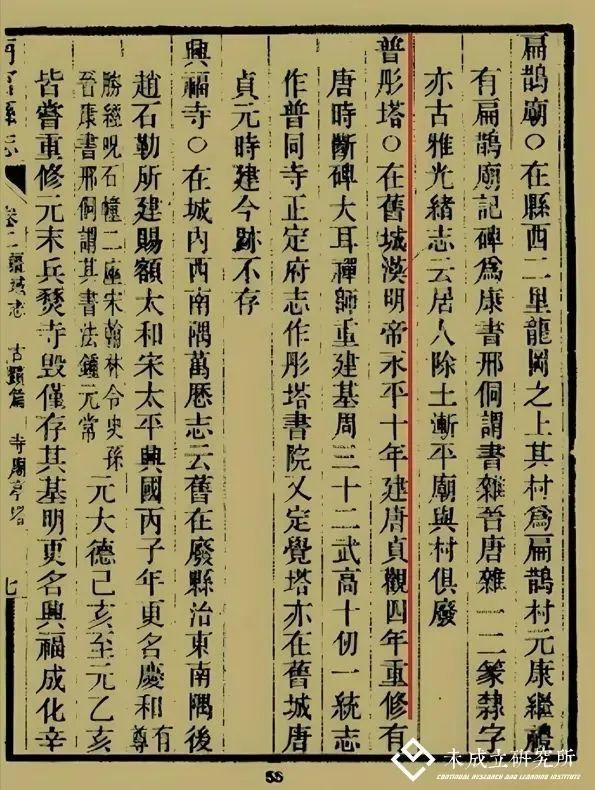 扁鵲廟○在縣西二里龍岡之上其村為扁鵲村元康繼禮
有扁鵲廟記碑為康書邢侗謂書雜晉唐雜一二篆隸字
亦古雅光緒志云居人除土漸平廟與村俱廢
普彤塔○在舊城漢明帝永平十年建唐貞觀四年重修有
唐時斷碑大耳禪師重建基周三十二武高十仞一統志
作普同寺正定府志作彤塔書院又定覺塔亦在舊城唐
貞元時建今跡不存
興福寺○在城內西南隅萬歷志云舊在廢縣治東南隅後
趙石勒所建賜額太和宋太平興國丙子年更名慶和有尊
勝經呪石幢二座宋翰林令史孫
晉康書邢侗謂其書法鍾元常
元大德己亥至元乙亥
皆嘗重修元末兵燹寺毀僅存其基明更名興福成化辛
南宮縣志
卷二 疆域志 古蹟篇 寺廟亭塔
七
58
未成立研究所
CONTINUAL RESEARCH AND LEARNING INSTITUTE